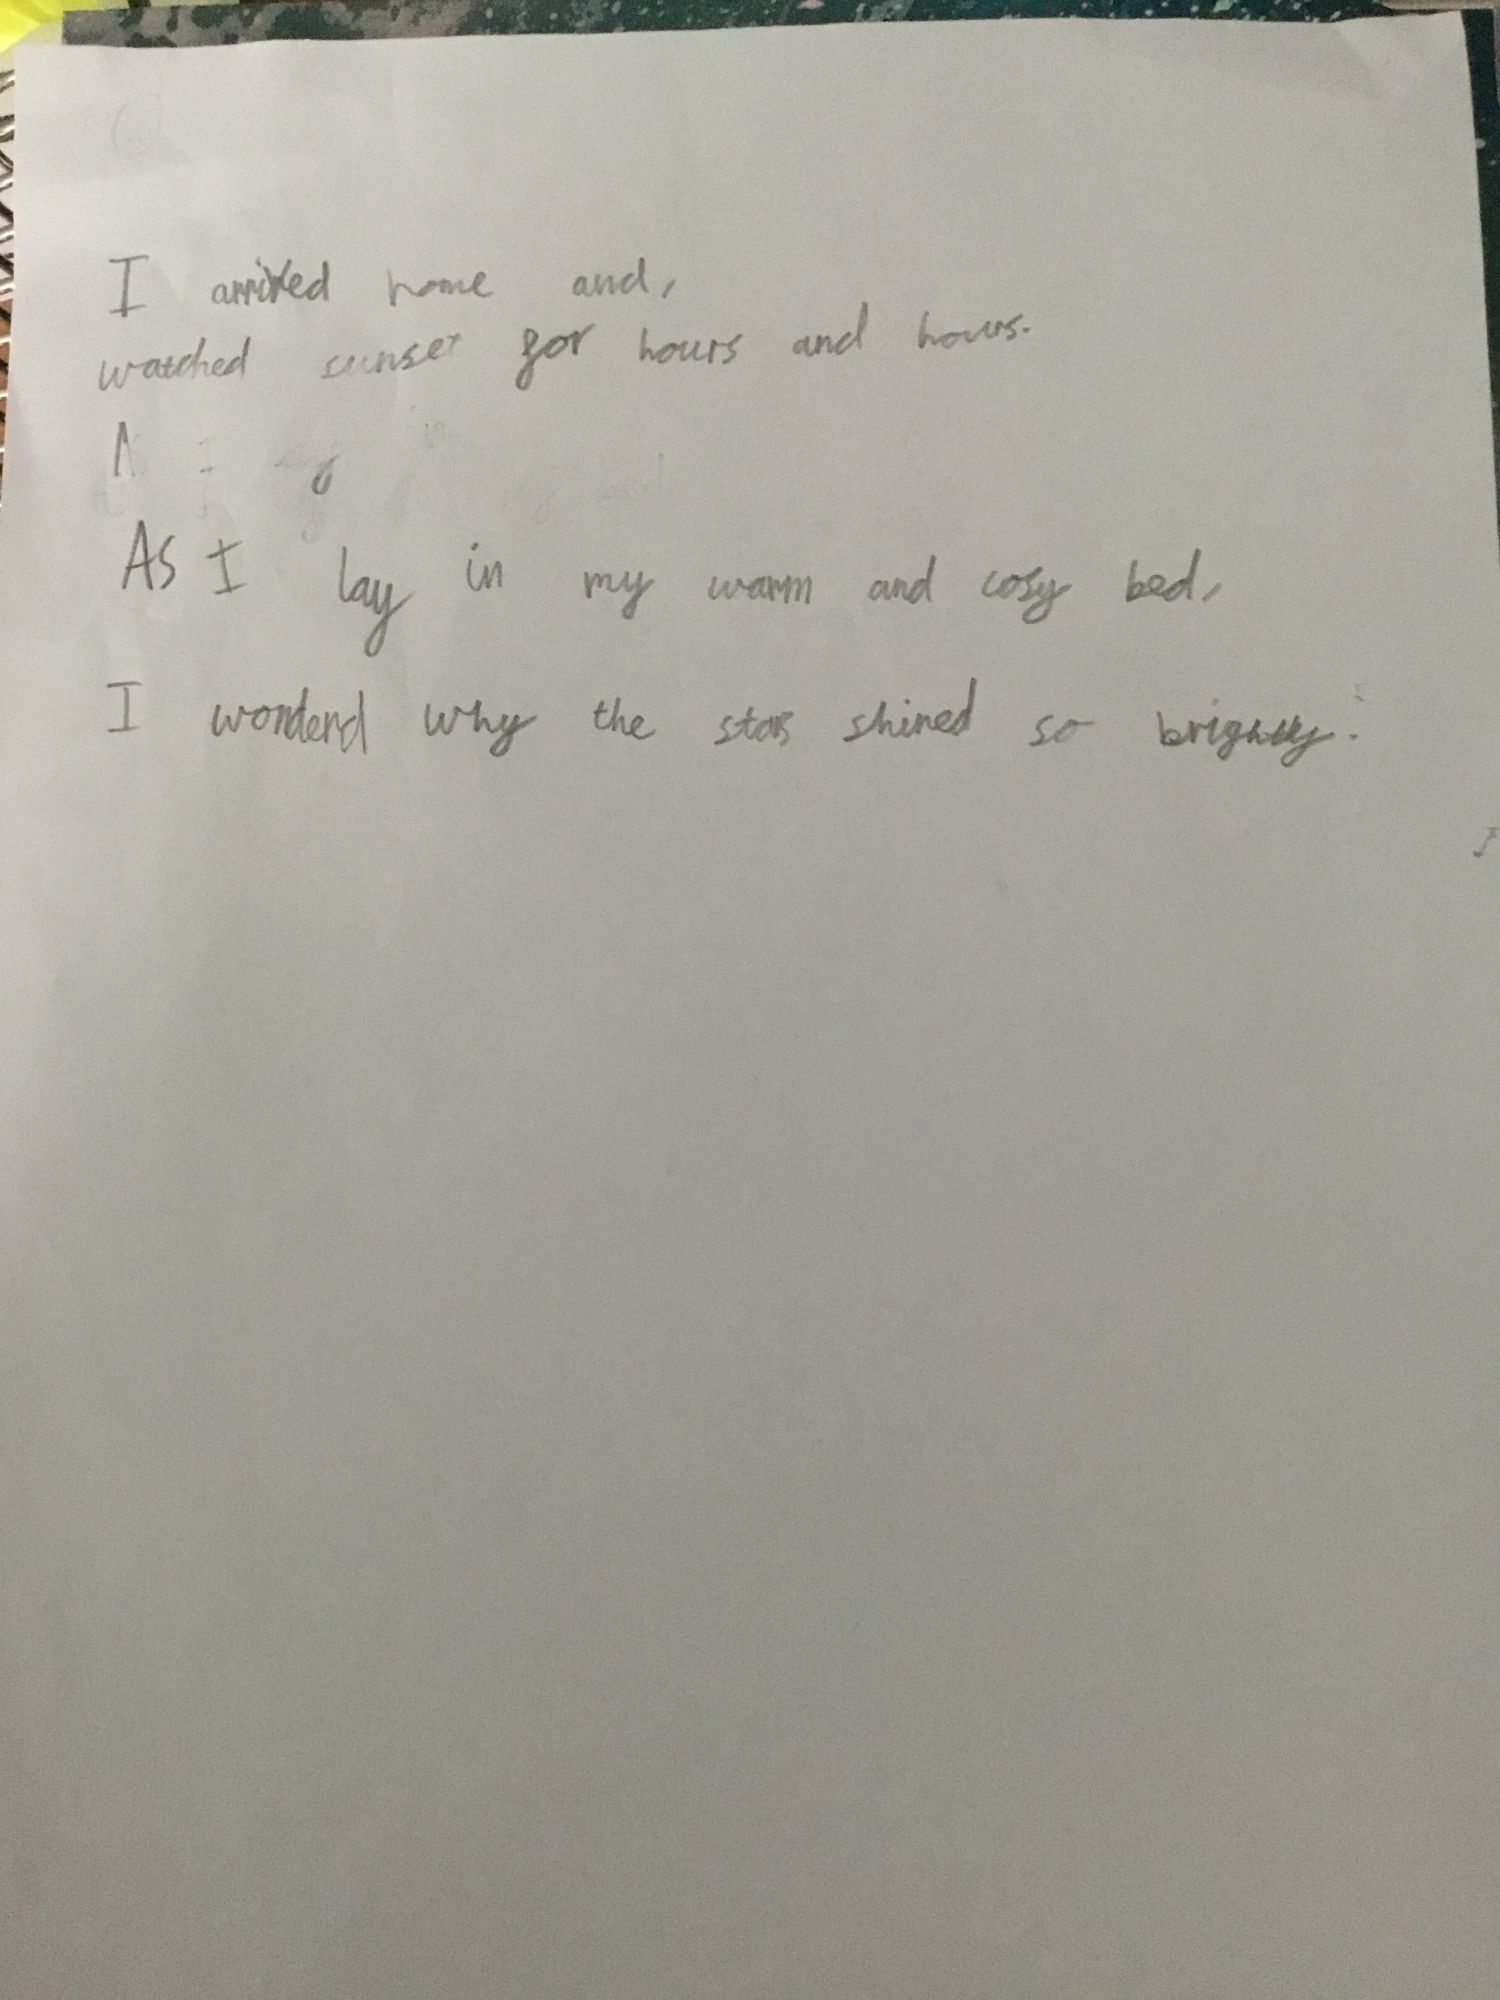 I arrived home and,
watched sunset for hours and hours.
As I lay in my warm and cosy bed,
I wonderd why the stars shined so brightly.